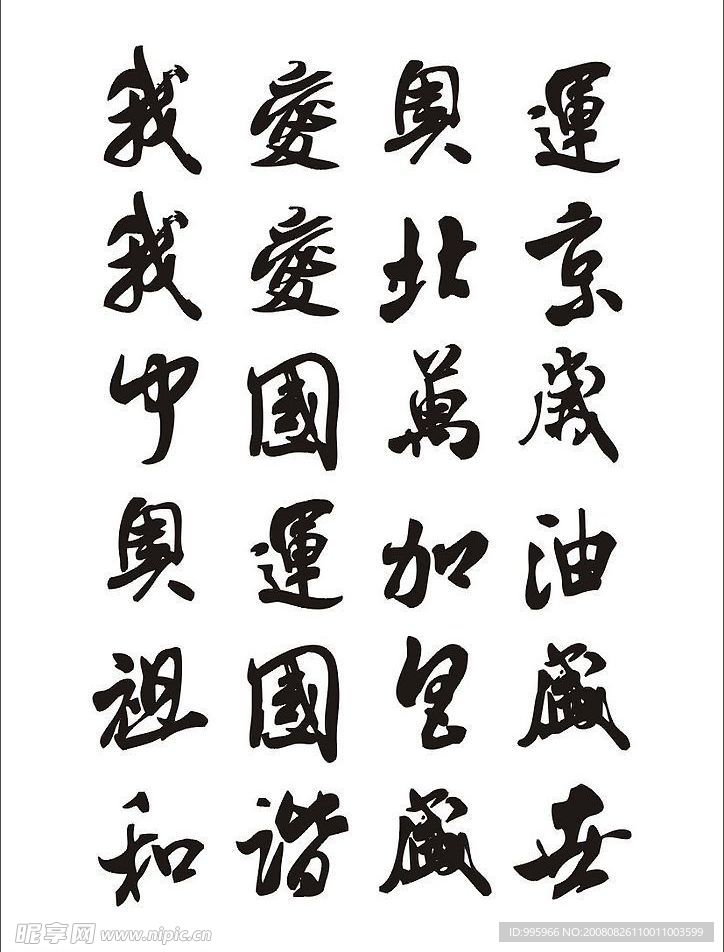 我愛奧運
我愛北京
中國萬歲
奧運加油
祖國昌盛
和諧盛世
昵享网 www.nipic.cn
ID:995966 NO:20080826110011003599